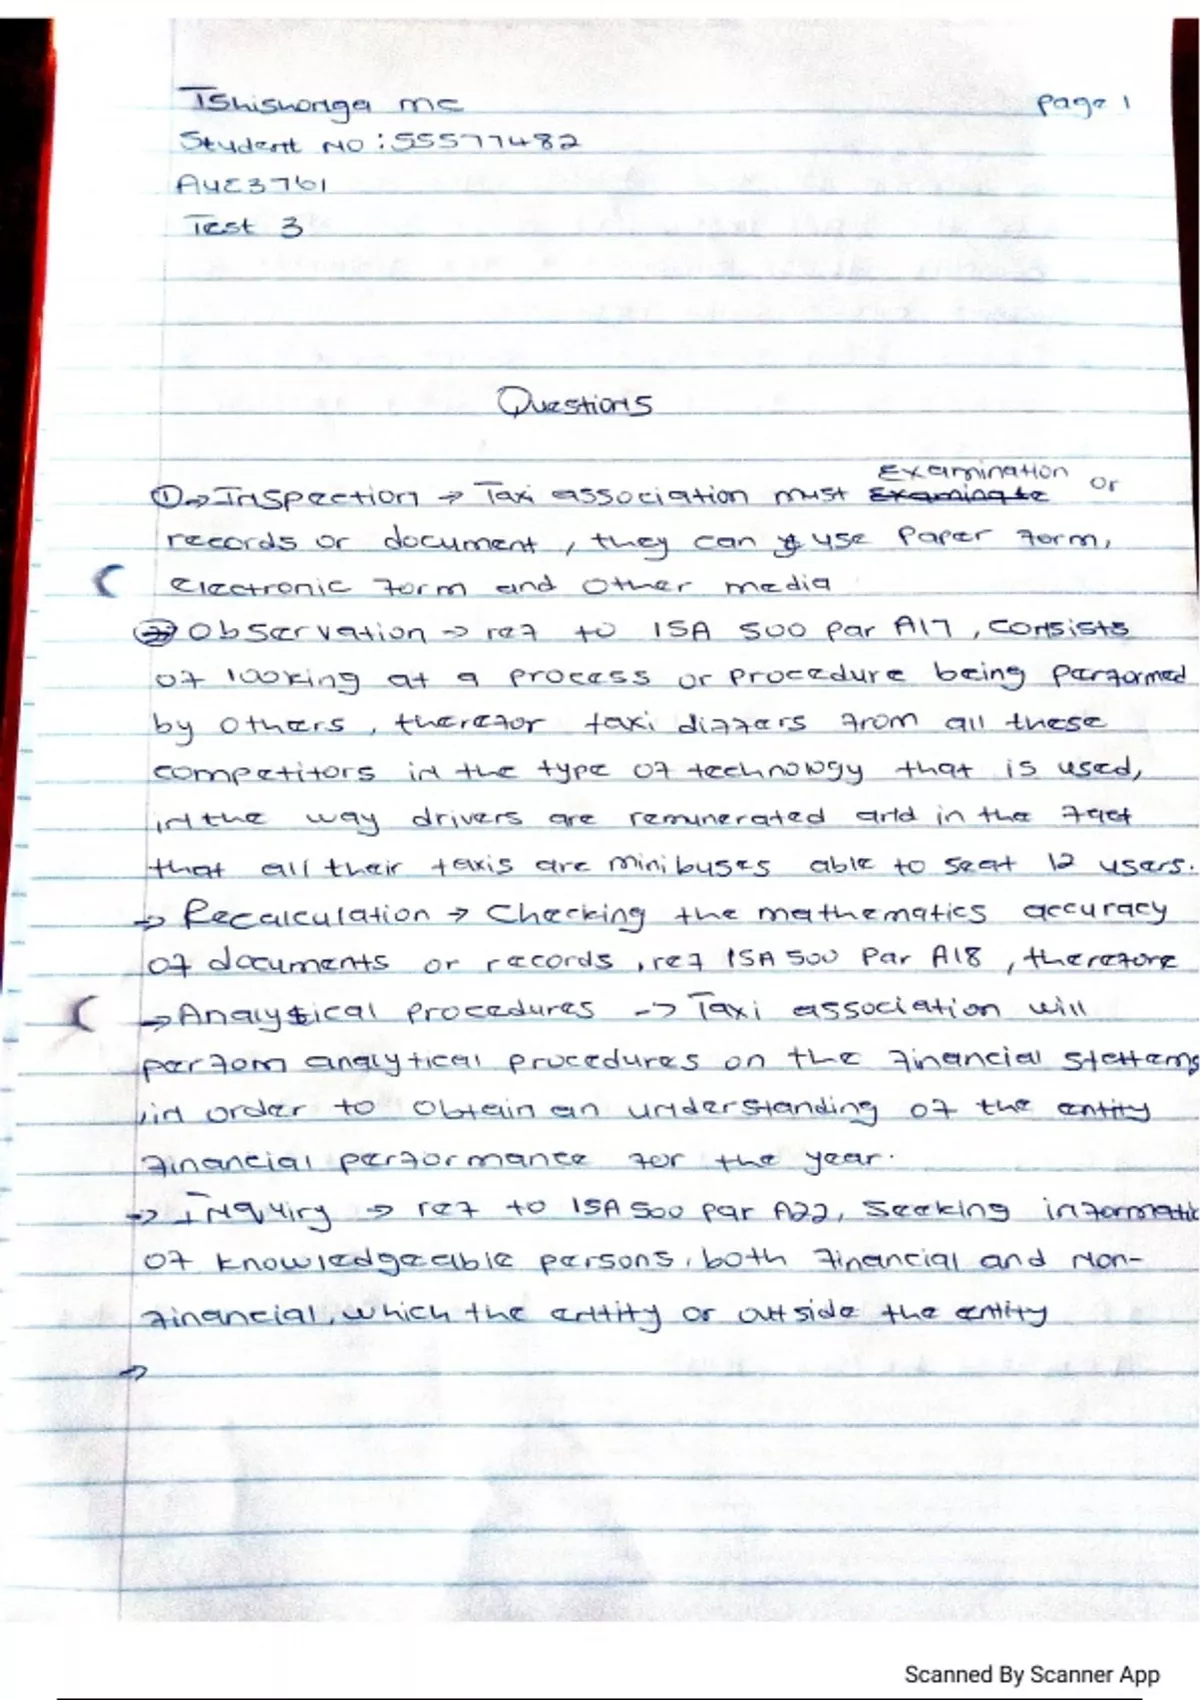 Tshishonga MC
Page 1
Student No : 55577482
AUE3761
Test 3
Questions
Examination
① → Inspection → Taxi association must Examinate or
records or document, they can use Paper form,
Electronic form and other media
→ Observation → ref to ISA 500 par A17, consists
of looking at a process or procedure being performed
by others, therefor taxi differs from all these
competitors in the type of technology that is used,
in the way drivers are remunerated and in the fact
that all their taxis are minibuses able to seat 12 users.
→ Recalculation → Checking the mathematics accuracy
of documents or records, ref ISA 500 Par A18, therefore
→ Analytical procedures -> Taxi association will
perfom analytical procedures on the financial stettems
, in order to obtain an understanding of the entity
financial performance for the year.
→ Inquiry → ref to ISA 500 par A22, Seeking informatic
of knowledgeable persons, both financial and Non-
financial, which the entity or outside the entity
→
Scanned By Scanner App